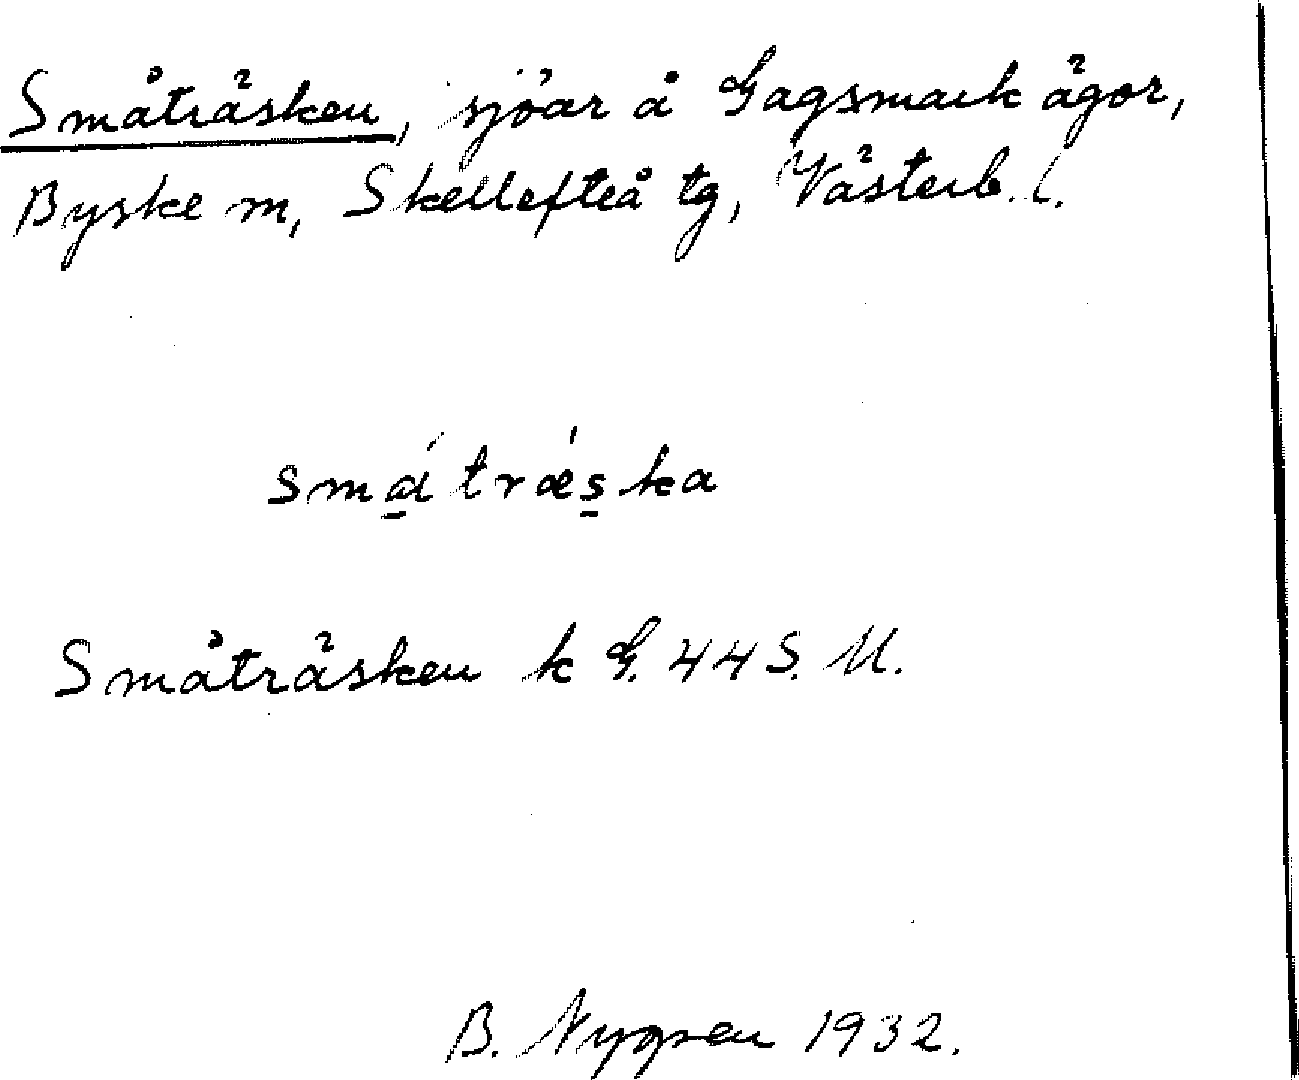 Småträsken, sjöar å Gagsmark ägor,
Byske sn, Skellefteå tg, Västerb. l.
småtræska
Småträsken k G. 44 S. U.
B. Nygren 1932.